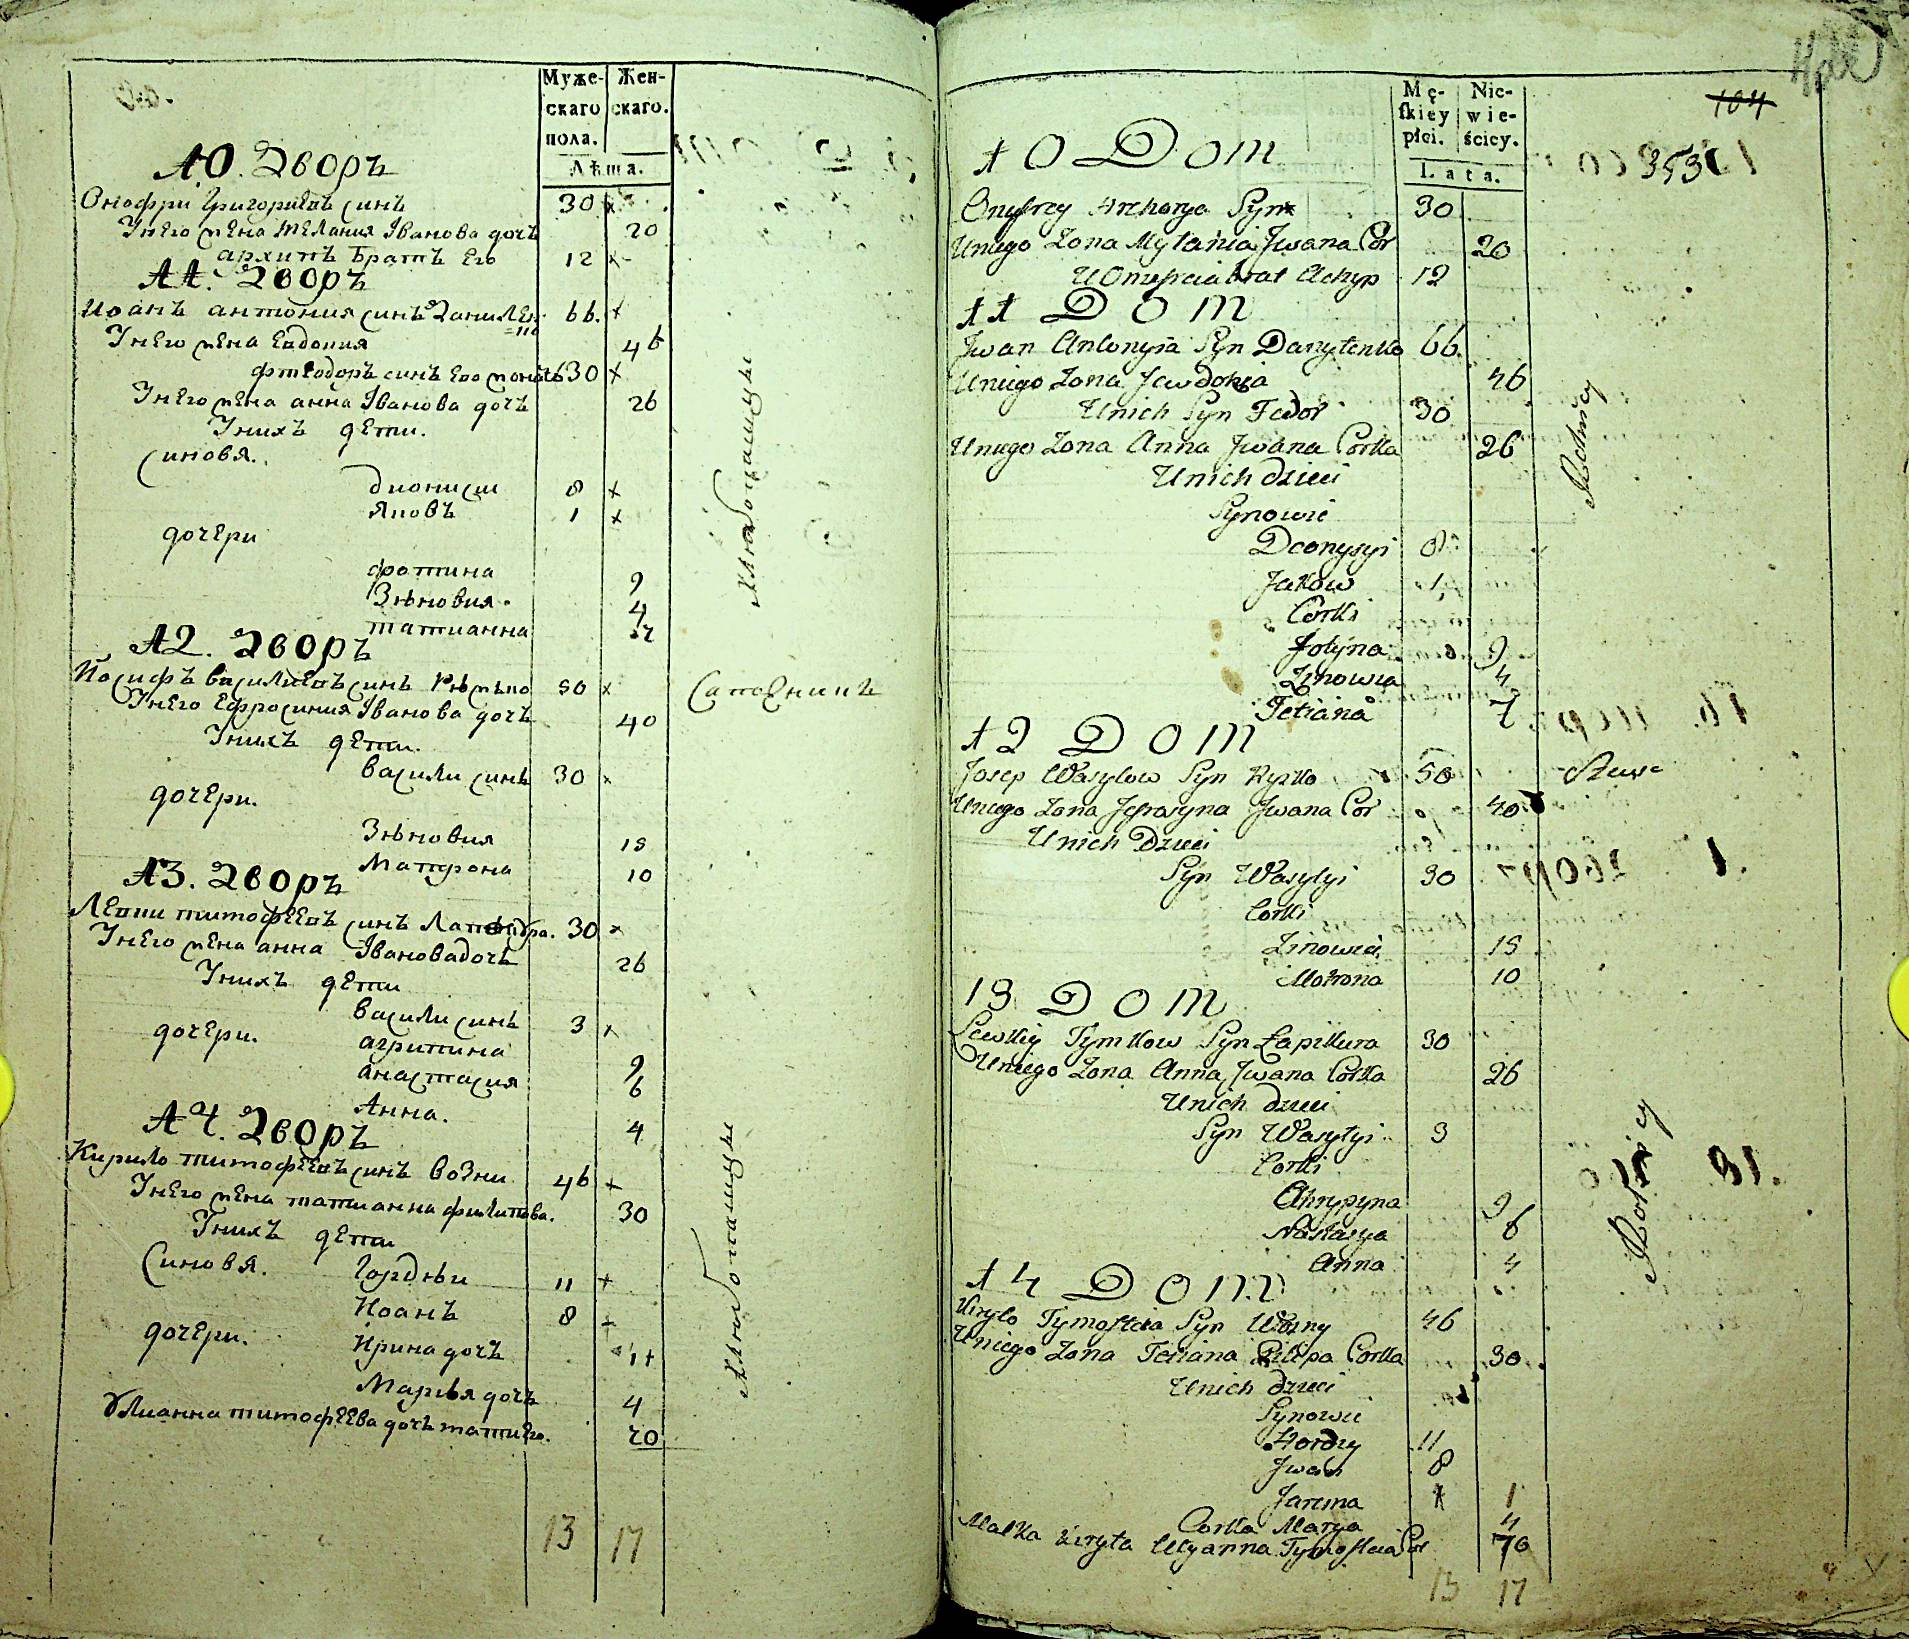 Муже-
скаго
пола.
Жен-
скаго.
Лѣта.
10. Дворъ
Онофри Григориевъ синъ 30 x
Унего жена Мелания Іванова дочь 20
архипъ братъ Его 12 x
11. Дворъ
Иоанъ антония синъ Даниленко 66. x
Унего жена Евдокия 46
Фтеодоръ синъ Его 30 x
Унего жена анна Іванова дочь 26
Унихъ дети.
Синовя.
Дионисии 8 x
Яковъ 1 x
дочери
фотина 9
Зѣновия. 4
татианна
12. Дворъ
Иосифъ василиевъ синъ 50 x
Унего Ефросиния Іванова дочь 40
Унихъ дети.
василии синъ 30 x
дочери.
Зѣновия 15
Матрона 10
13. Дворъ
Левки тимофеевъ синъ 30 x
Унего жена анна Іванова дочь 26
Унихъ дети
василии синъ 3 x
дочери.
агрипина 9
анастасия 6
Анна. 4
14. Дворъ
Кирило тимофеевъ синъ возни 46 x
Унего жена татианна филипова. 30
Унихъ дети
Синовя.
Гордѣи 11 x
Иоанъ 8
дочери.
Ирина дочь
Марья дочь 4
Улианна тимофеева дочь мати Его. 70
13 17
Хлѣбопашцы
Хлѣбопашцы
Mę-
skiey
płci.
Nie-
wie-
ściey.
Lata.
104
353
10 Dom
Onyfrey Syn 30
Uniego Zona Mylania Jwana Cor 20
brat Achyp 12
11 Dom
Jwan Antonyia Syn Danylenko 66.
Uniego Zona Jewdokia 46
Unich Syn Fedor 30
Uniego Zona Anna Jwana Corka 26
Unich dzieci
Synowie
Deonysyi 8
Jakow 1
Corki
Fotyna 9
Zinowia 4
Tetiana
12 Dom
Josep Wasylow Syn 50
Uniego Zona Jefrosyna Jwana Cor 40
Unich Dzieci
Syn Wasylyi 30
Corki
Zinowia 15
Motrona 10
13 Dom
Lewkiy Tymkow Syn Łapikura 30
Uniego Zona Anna Jwana Corka 26
Unich dzieci
Syn Wasylyi 3
Corki
Ahrypyna 9
Nastasya 6
Anna 4
14 Dom
Kirylo Tymofieia Syn Wozny 46
Uniego Zona Tetiana Filipa Corka 30
Unich dzieci
Synowie
Hordey 11
Jwan 8
Jaryna 1
Corka Marya 4
Matka Kiryła Ulyanna Tymofieia Cor 70
13 17
Rolnicy
Rolnicy